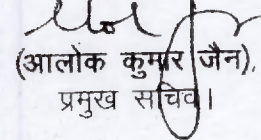 (आलोक कुमार जैन),
प्रमुख सचिव।